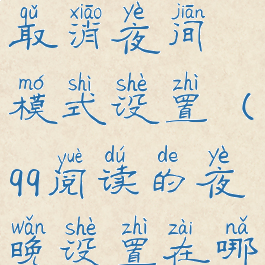 qǔ xiāo yè jiān
取消夜间
mó shì shè zhì
模式设置（
yuè dú de yè
99阅读的夜
wǎn shè zhì zài nǎ
晚设置在哪